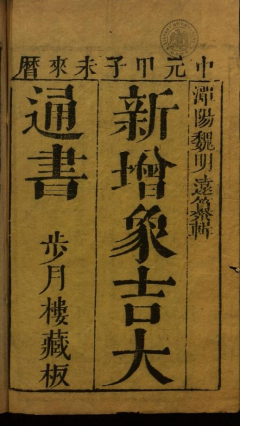 中元甲子未來曆
潭陽魏明遠纂輯
新增象吉大
通書
步月樓藏板